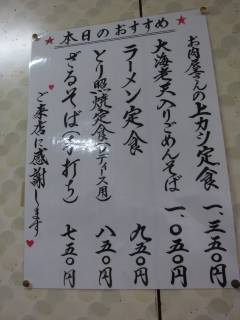 ★本日のおすすめ★
お肉屋さんの上カツ定食 一、三五〇円
大海老天入りごめんそば 一、〇五〇円
ラーメン定食 九五〇円
とり照焼定食(レディース用) 八五〇円
ざるそば(手打ち) 七五〇円
♥ご来店に感謝します♥